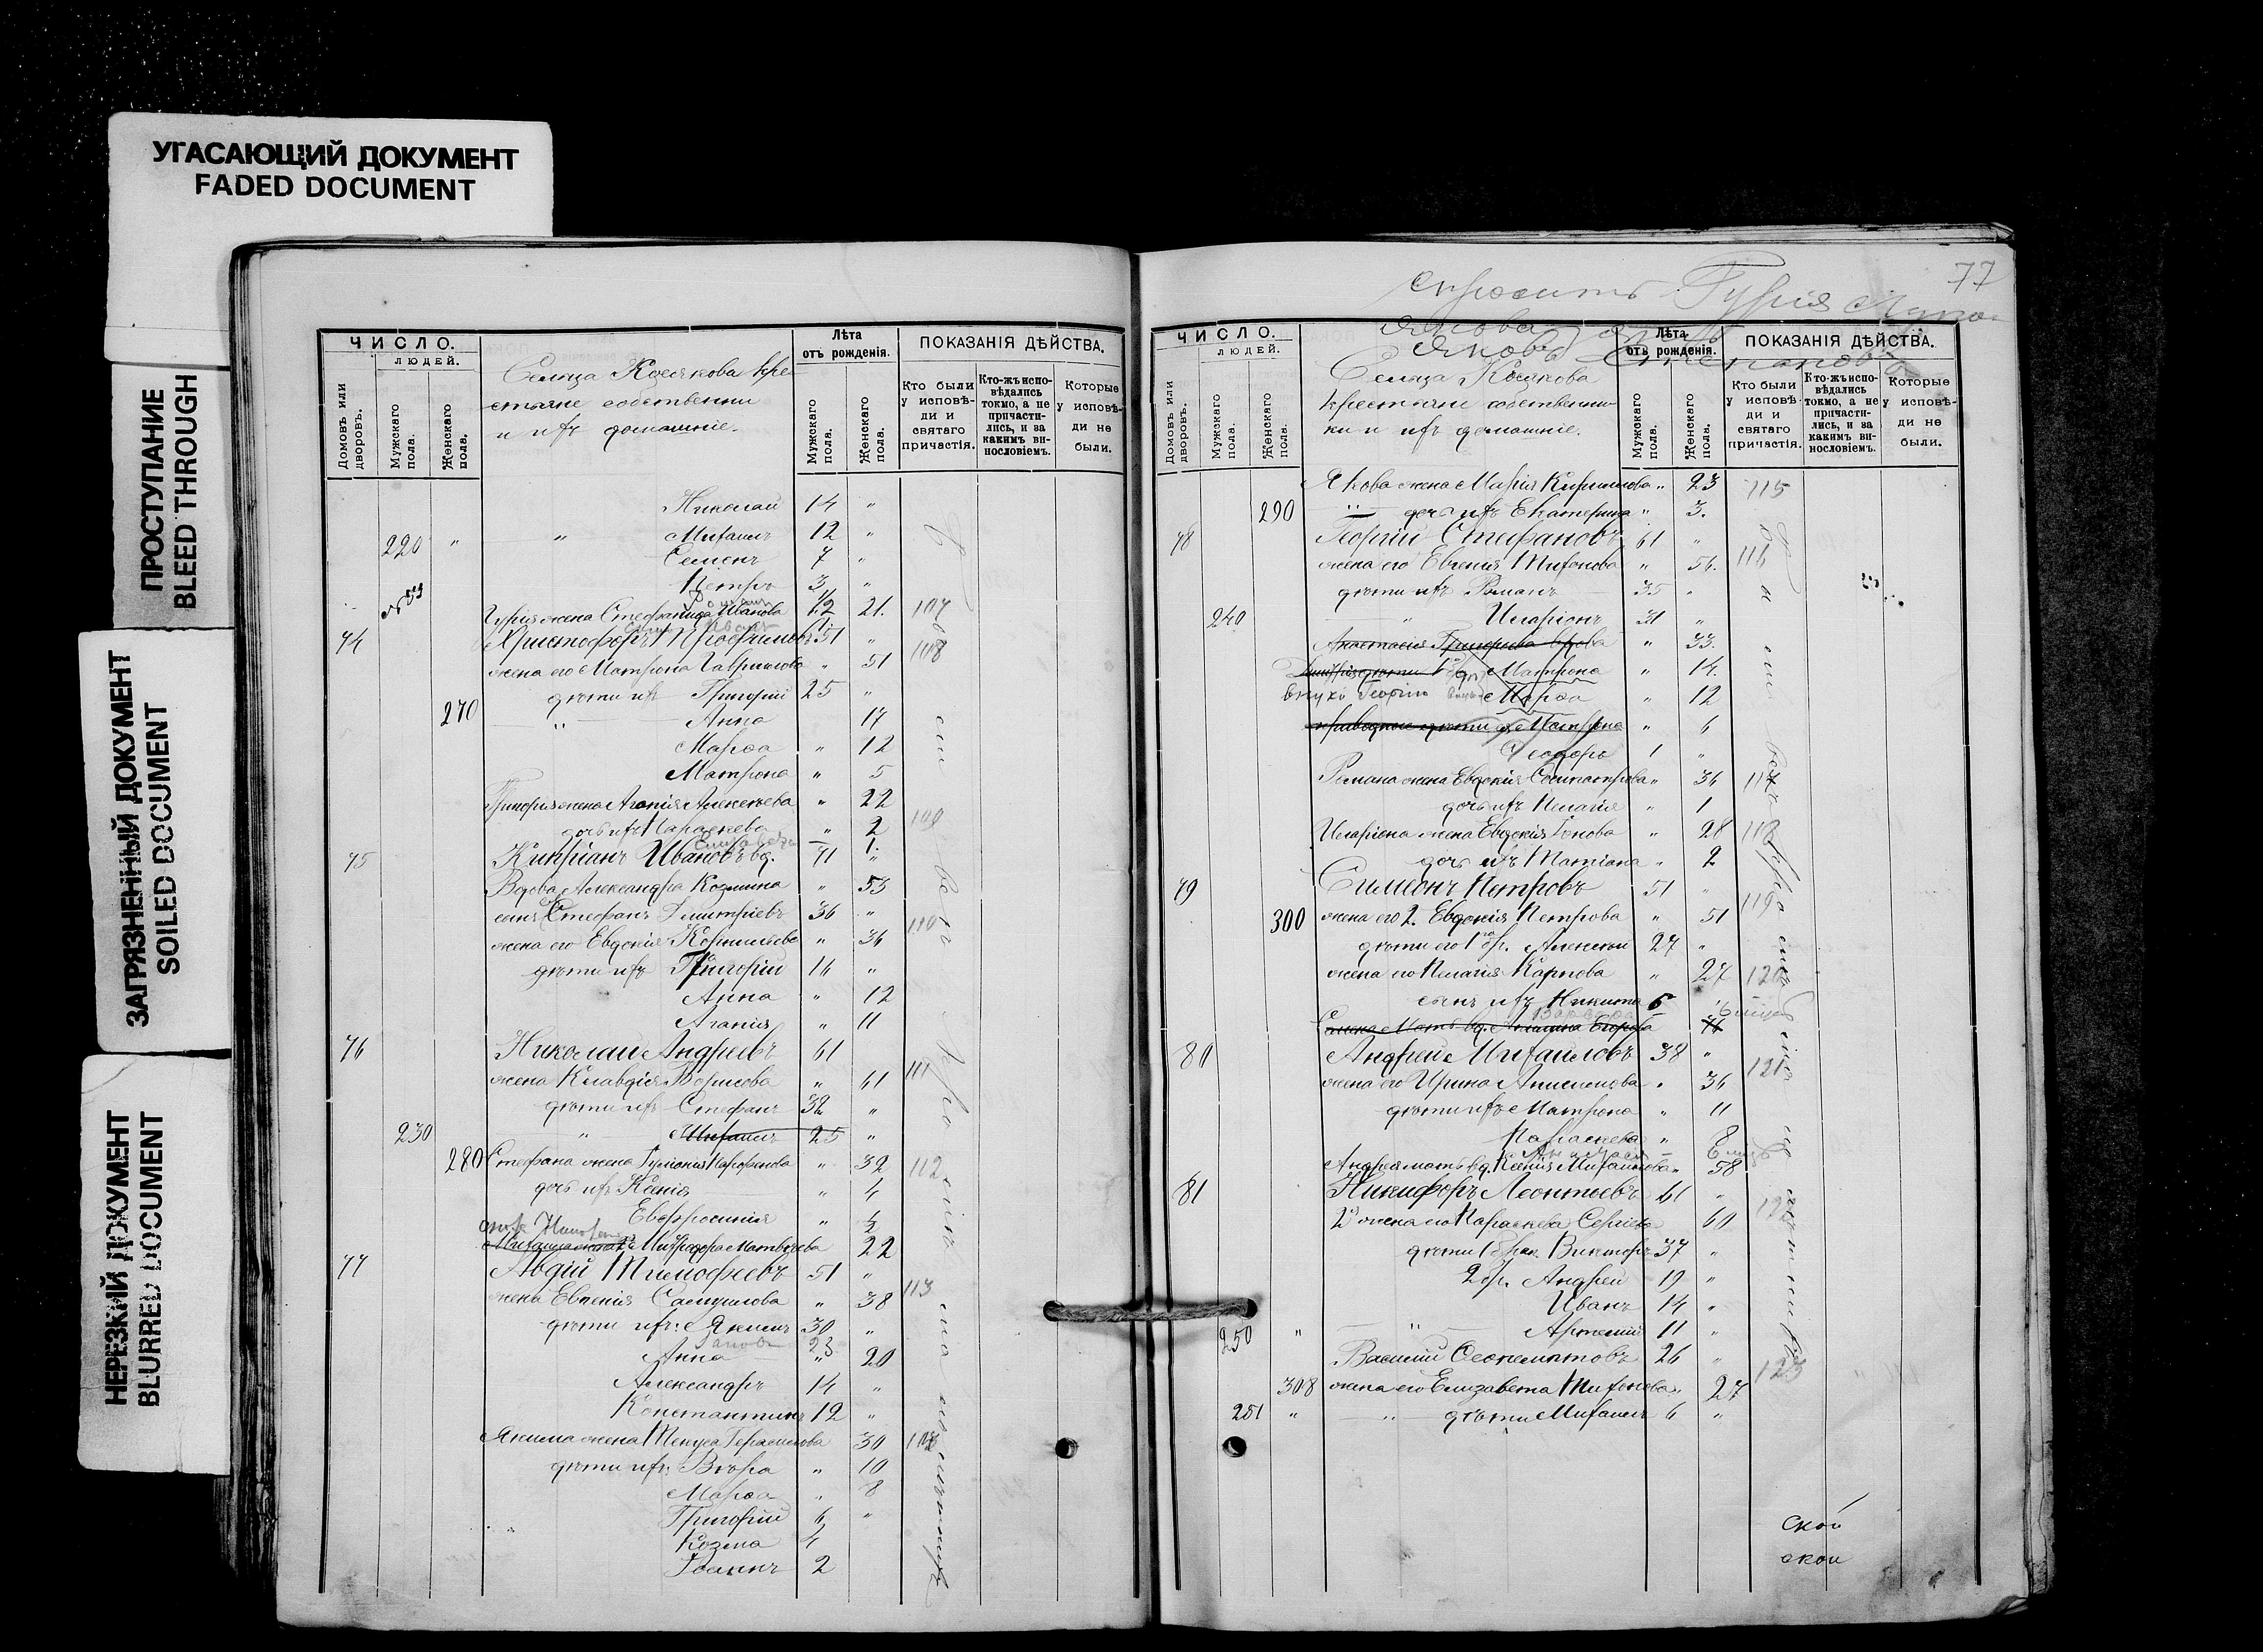 УГАСАЮЩИЙ ДОКУМЕНТ
FADED DOCUMENT
ПРОСТУПАНИЕ
BLEED THROUGH
ЗАГРЯЗНЕННЫЙ ДОКУМЕНТ
SOILED DOCUMENT
НЕРЕЗКИЙ ДОКУМЕНТ
BLURRED DOCUMENT
ЧИСЛО.
людей.
Домовъ или дворовъ.
Мужскаго пола.
Женскаго пола.
Сельца Косякова кре-
стьяне собственни
и ихъ домашніе.
Лѣта
отъ рожденія.
Мужскаго пола.
Женскаго пола.
ПОКАЗАНІЯ ДѢЙСТВА.
Кто были у исповѣди и святаго причастія.
Кто-жъ исповѣдались токмо, а не причастились, и за какимъ винословіемъ.
Которые у исповѣди не были.
Николай 14 "
220 " " Михаилъ 12 "
Семенъ 7 "
Петръ 3 "
Гурія жена Стефанида Иванова 21. 107
74 Христофоръ Трофимовъ 51 "
жена его Матрона Гаврилова " 51 108
дѣти ихъ Григорій 25 "
270 " Анна 17
Марѳа " 12
Матрона " 5
Григорія жена Агапія Алексеева " 22
дочь ихъ Параскева " 2 109
75 Кипріанъ Ивановъ вд. 71 "
Вдова Александра Козмина " 53
сынъ Стефанъ Димитріевъ 36 "
жена его Евдокія Корнильева " 36 110
дѣти ихъ Григорій 16 "
Анна " 12
Агапія " 11
76 Николай Андреевъ 61
жена Клавдія Борисова " 61 111
дѣти ихъ Стефанъ 32 "
230 " Михаилъ 25 "
280 Стефана жена Гликерія Парфенова " 32 112
дочь ихъ Ксенія " 4
Евфросинія " ½
Михаила жена Митродора Матвеева 22
77 Авдій Тимофеевъ 51 "
жена Евгенія Самуилова " 38 113
дѣти ихъ: Якимъ 30 "
23
Анна " 20
Александръ 14 "
Константинъ 12 "
Якима жена Текуса Герасимова 30 114
дѣти ихъ Вѣра " 10
Марѳа " 8
Григорій 6 "
Козма 4
Іоаннъ 2
77
спросить Гурія
Якова
Яковъ Степановъ
ЧИСЛО.
людей.
Домовъ или дворовъ.
Мужскаго пола.
Женскаго пола.
Сельца Косякова
крестьяне собственни-
ки и ихъ домашніе.
Лѣта
отъ рожденія.
Мужскаго пола.
Женскаго пола.
ПОКАЗАНІЯ ДѢЙСТВА.
Кто были у исповѣди и святаго причастія.
Кто-жъ исповѣдались токмо, а не причастились, и за какимъ винословіемъ.
Которые у исповѣди не были.
Якова жена Марія Кирилова " 23 115
290 " дочь ихъ Екатерина " 3.
78 Георгій Стефановъ 61 "
жена его Евгенія Тихонова " 56. 116
дѣти ихъ Романъ 35 "
240 " Иларіонъ 31 "
Анастасія Григорьева вдова " 33.
Матрона " 14.
внуки Георгію Марѳа " 12
Матрона " 6
Ѳеодоръ 1 "
Романа жена Евдокія Сосипатрова " 36 117
дочь ихъ Пелагія " 1
Иларіона жена Евдокія Іонова " 28 118
дочь ихъ Татіана " 2
79 Симеонъ Петровъ 51 "
300 жена его 2. Евдокія Петрова " 51 119
дѣти его 1го бр. Алексей 27 "
жена его Пелагія Карпова " 27 120
сынъ ихъ Никита 6
80 Андрей Михаиловъ 38 "
жена его Ирина Анисимова " 36 121
дѣти ихъ Матрона " 11
Параскева " 8
Андрея мать вд. Ксенія Михаилова " 58
81 Никифоръ Леонтьевъ 61 "
2я жена его Параскева Сергіева 60 122
дѣти 1 брак. Викторъ 37 "
2 бр. Андрей 19 "
Иванъ 14 "
250 " " Артемій 11 "
Василій Ѳеоклиптовъ 26 "
308 жена его Елизавета Тихонова " 27 123
251 " " дѣти Михаилъ 6 "
ской
ской